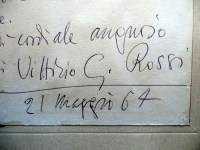 e.
cordiale augurio
Vittorio G. Rossi
21 maggio 64